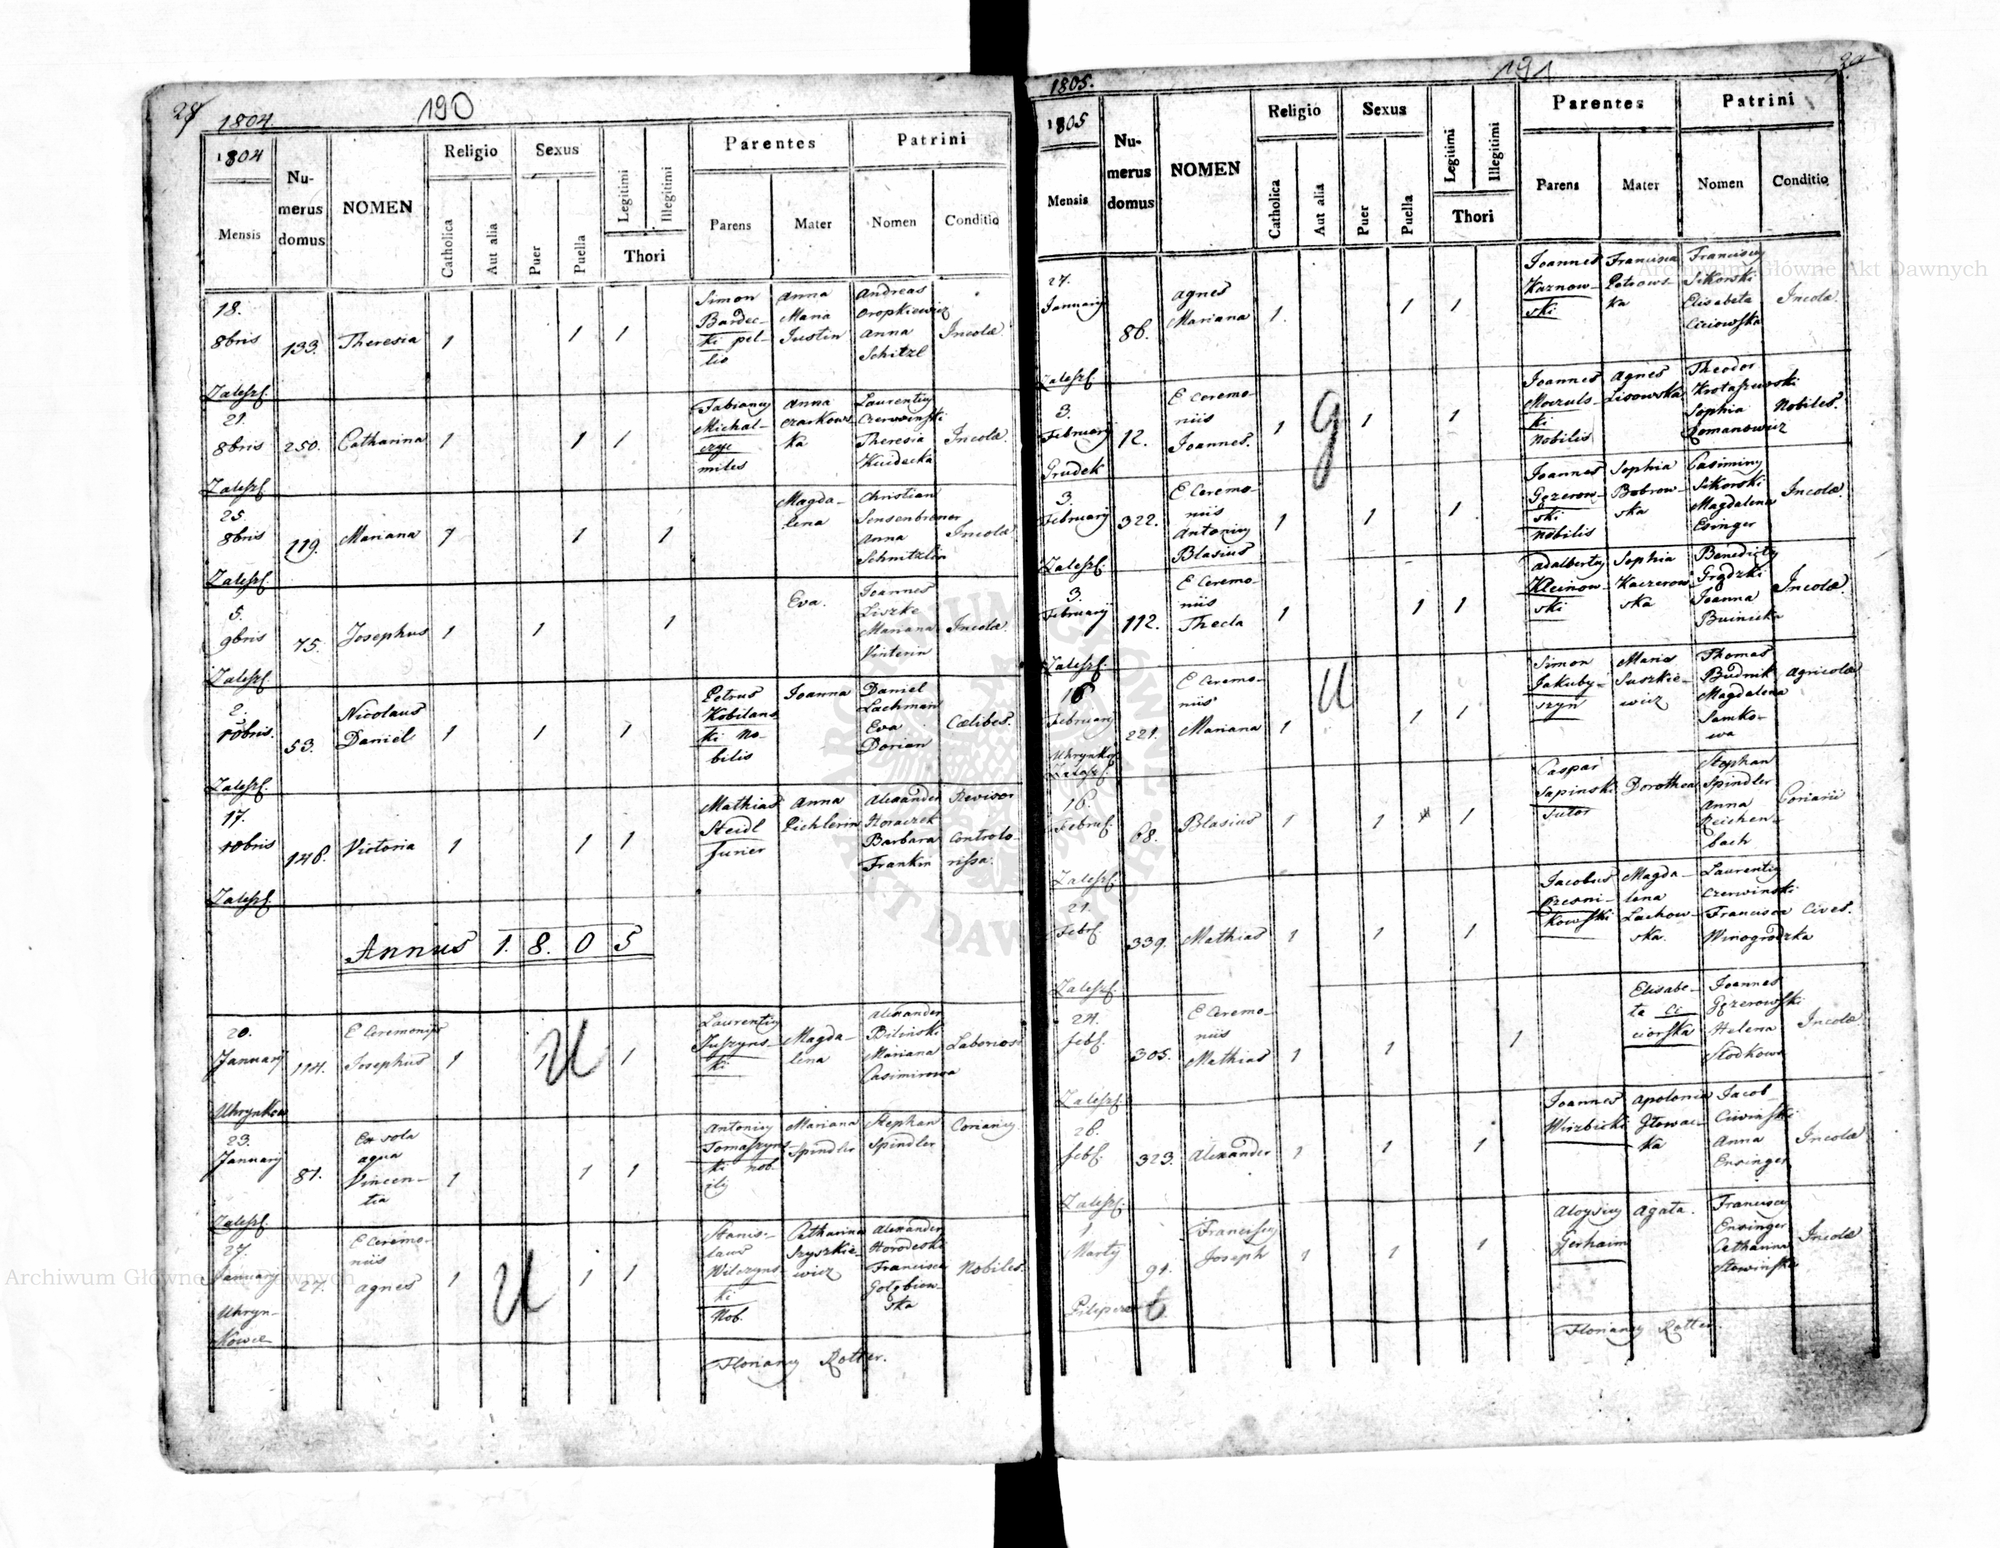 28
1804
190
1804
Mensis
Numerus domus
NOMEN
Religio
Catholica
Aut alia
Sexus
Puer
Puella
Legitimi
Illegitimi
Thori
Parentes
Parens
Mater
Patrini
Nomen
Conditio
18.
8bris
Zaleszf.
133.
Theresia
1
1
1
Simon
Bardec-
ki pel-
lio
Anna
Maria
Justin
Andreas
Oropkiewicz
Anna
Schitzl
Incolæ
21.
8bris
Zaleszf.
250.
Catharina
1
1
1
Fabianus
Michal-
czyc
miles
Anna
Czarkows
ka
Laurentius
Czerwinski
Theresia
Kudecka
Incolæ
25.
8bris
Zaleszf.
119.
Mariana
1
1
1
Magda-
lena
Christian
Sensenbrener
Anna
Schnitzlin
Incolæ
5.
9bris
Zaleszf.
75.
Josephus
1
1
1
Eva.
Joannes
Liszke
Mariana
Vinterin
Incolæ
2.
10bris.
Zaleszf.
53.
Nicolaus
Daniel
1
1
1
Petrus
Kobilans
ki No-
bilis
Joanna
Daniel
Lachman
Eva
Dorian
Cælibes.
17.
10bris
Zaleszf.
148.
Victoria
1
1
1
Mathias
Steidl
furier
Anna
Eichlerin
Alexander
Horaczek
Barbara
Frankin
Revisor
Controlo
rissa.
Annus 1. 8. 0 5
20.
January
Uhrynkow
114.
E Ceremonys
Josephus
1
1
U
1
Laurentius
Juszyns-
ki
Magda-
lena
Alexander
Bilinski
Mariana
Casimirowa
Laboriosi
23.
January
Zaleszf.
81.
Ex sola
aqua
Vincen-
tia
1
1
1
Antonius
Tomaszyns
ki nob.
ilis
Mariana
Spindler
Stephan
Spindler
Corianus
27.
January
Uhryn-
kowce
27.
E Ceremo-
niis
Agnes
1
U
1
1
Stanis-
laus
Wilczyns-
ki
Nob.
Catharina
Szyszkie-
wicz
Alexander
Horodeski
Francisca
Gołębiew-
ska
Nobiles.
Florianus Rotter.
1805.
191
1805
Mensis
Numerus domus
NOMEN
Religio
Catholica
Aut alia
Sexus
Puer
Puella
Legitimi
Illegitimi
Thori
Parentes
Parens
Mater
Patrini
Nomen
Conditio
27.
January
Zaleszf.
86.
Agnes
Mariana
1.
1
1
Joannes
Kaznow-
ski
Francisca
Petrows-
ka
Franciscus
Sikorski
Elisabeta
Ciciowska
Incolæ.
3.
February
Grudek
12.
E Ceremo-
niis
Joannes.
1
g
1
1
Joannes
Moczuls-
ki
nobilis
Agnes
Lisowska
Theodor
Krotaszewski
Sophia
Romanowicz
Nobiles.
3.
February
Zaleszf.
322.
E Ceremo-
niis
Antonius
Blasius
1
1
1
Joannes
Gęzerow-
ski
nobilis
Sophia
Bobrow-
ska
Casimirus
Sikorski
Magdalena
Esinger
Incolæ.
3.
February
Zaleszf.
112.
E Ceremo-
niis
Thecla
1
1
1
Adalbertus
Kleinow-
ski
Sophia
Kaczerow-
ska
Benedictus
Grądzki
Joanna
Buinicka
Incolæ.
16
February
Uhrynkow
221.
E Ceremo-
niis
Mariana
1
U
1
1
Simon
Jakuby-
szyn
Maria
Suszkie-
wicz
Thomas
Budnik
Magdalena
Samko-
wa
Agricolæ
Zaleszf.
16.
Februf.
Zaleszf.
68.
Blasius
1
1
1
Caspar
Sapinski
Sutor
Dorothea
Stephan
Spindler
Anna
Reichen-
bach
Coriarii
21.
Febrf
Zaleszf.
339.
Mathias
1
1
1
Jacobus
Czesni-
kowski
Magda-
lena
Lachow-
ska.
Laurentius
Czerwinski
Francisca
Winogrodzka
Cives.
24.
febf.
Zaleszf.
305.
E Ceremo-
niis
Mathias
1
1
1
Elisabe-
ta Ci
ciorska
Joannes
Gęzerowski
Helena
Słodkowa
Incolæ
26.
febf.
Zaleszf.
323.
Alexander
1
1
1
Joannes
Wirzbicki
Apolonia
Głowac-
ka
Jacob
Anna
Ensinger
Incolæ
1
Marty
91.
Franciscus
Joseph
1
1
1
Aloysius
Gerhaim
Agata.
Franciscus
Ensinger
Catharina
Słowinska
Incolæ
Florianus Rotter.
Archiwum Główne Akt Dawnych
Archiwum Główne Akt Dawnych
ARCHIWUM GŁÓWNE AKT DAWNYCH